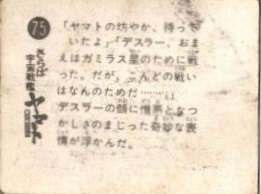 75
さらば
宇宙戦艦
ヤマト
「ヤマトの坊やか、待って
いたよ」「デスラー、おま
えはガミラス星のために戦
った。だが、こんどの戦い
はなんのためだ……」
デスラーの顔に憎悪となつ
かしさのまじった奇妙な表
情が浮かんだ。